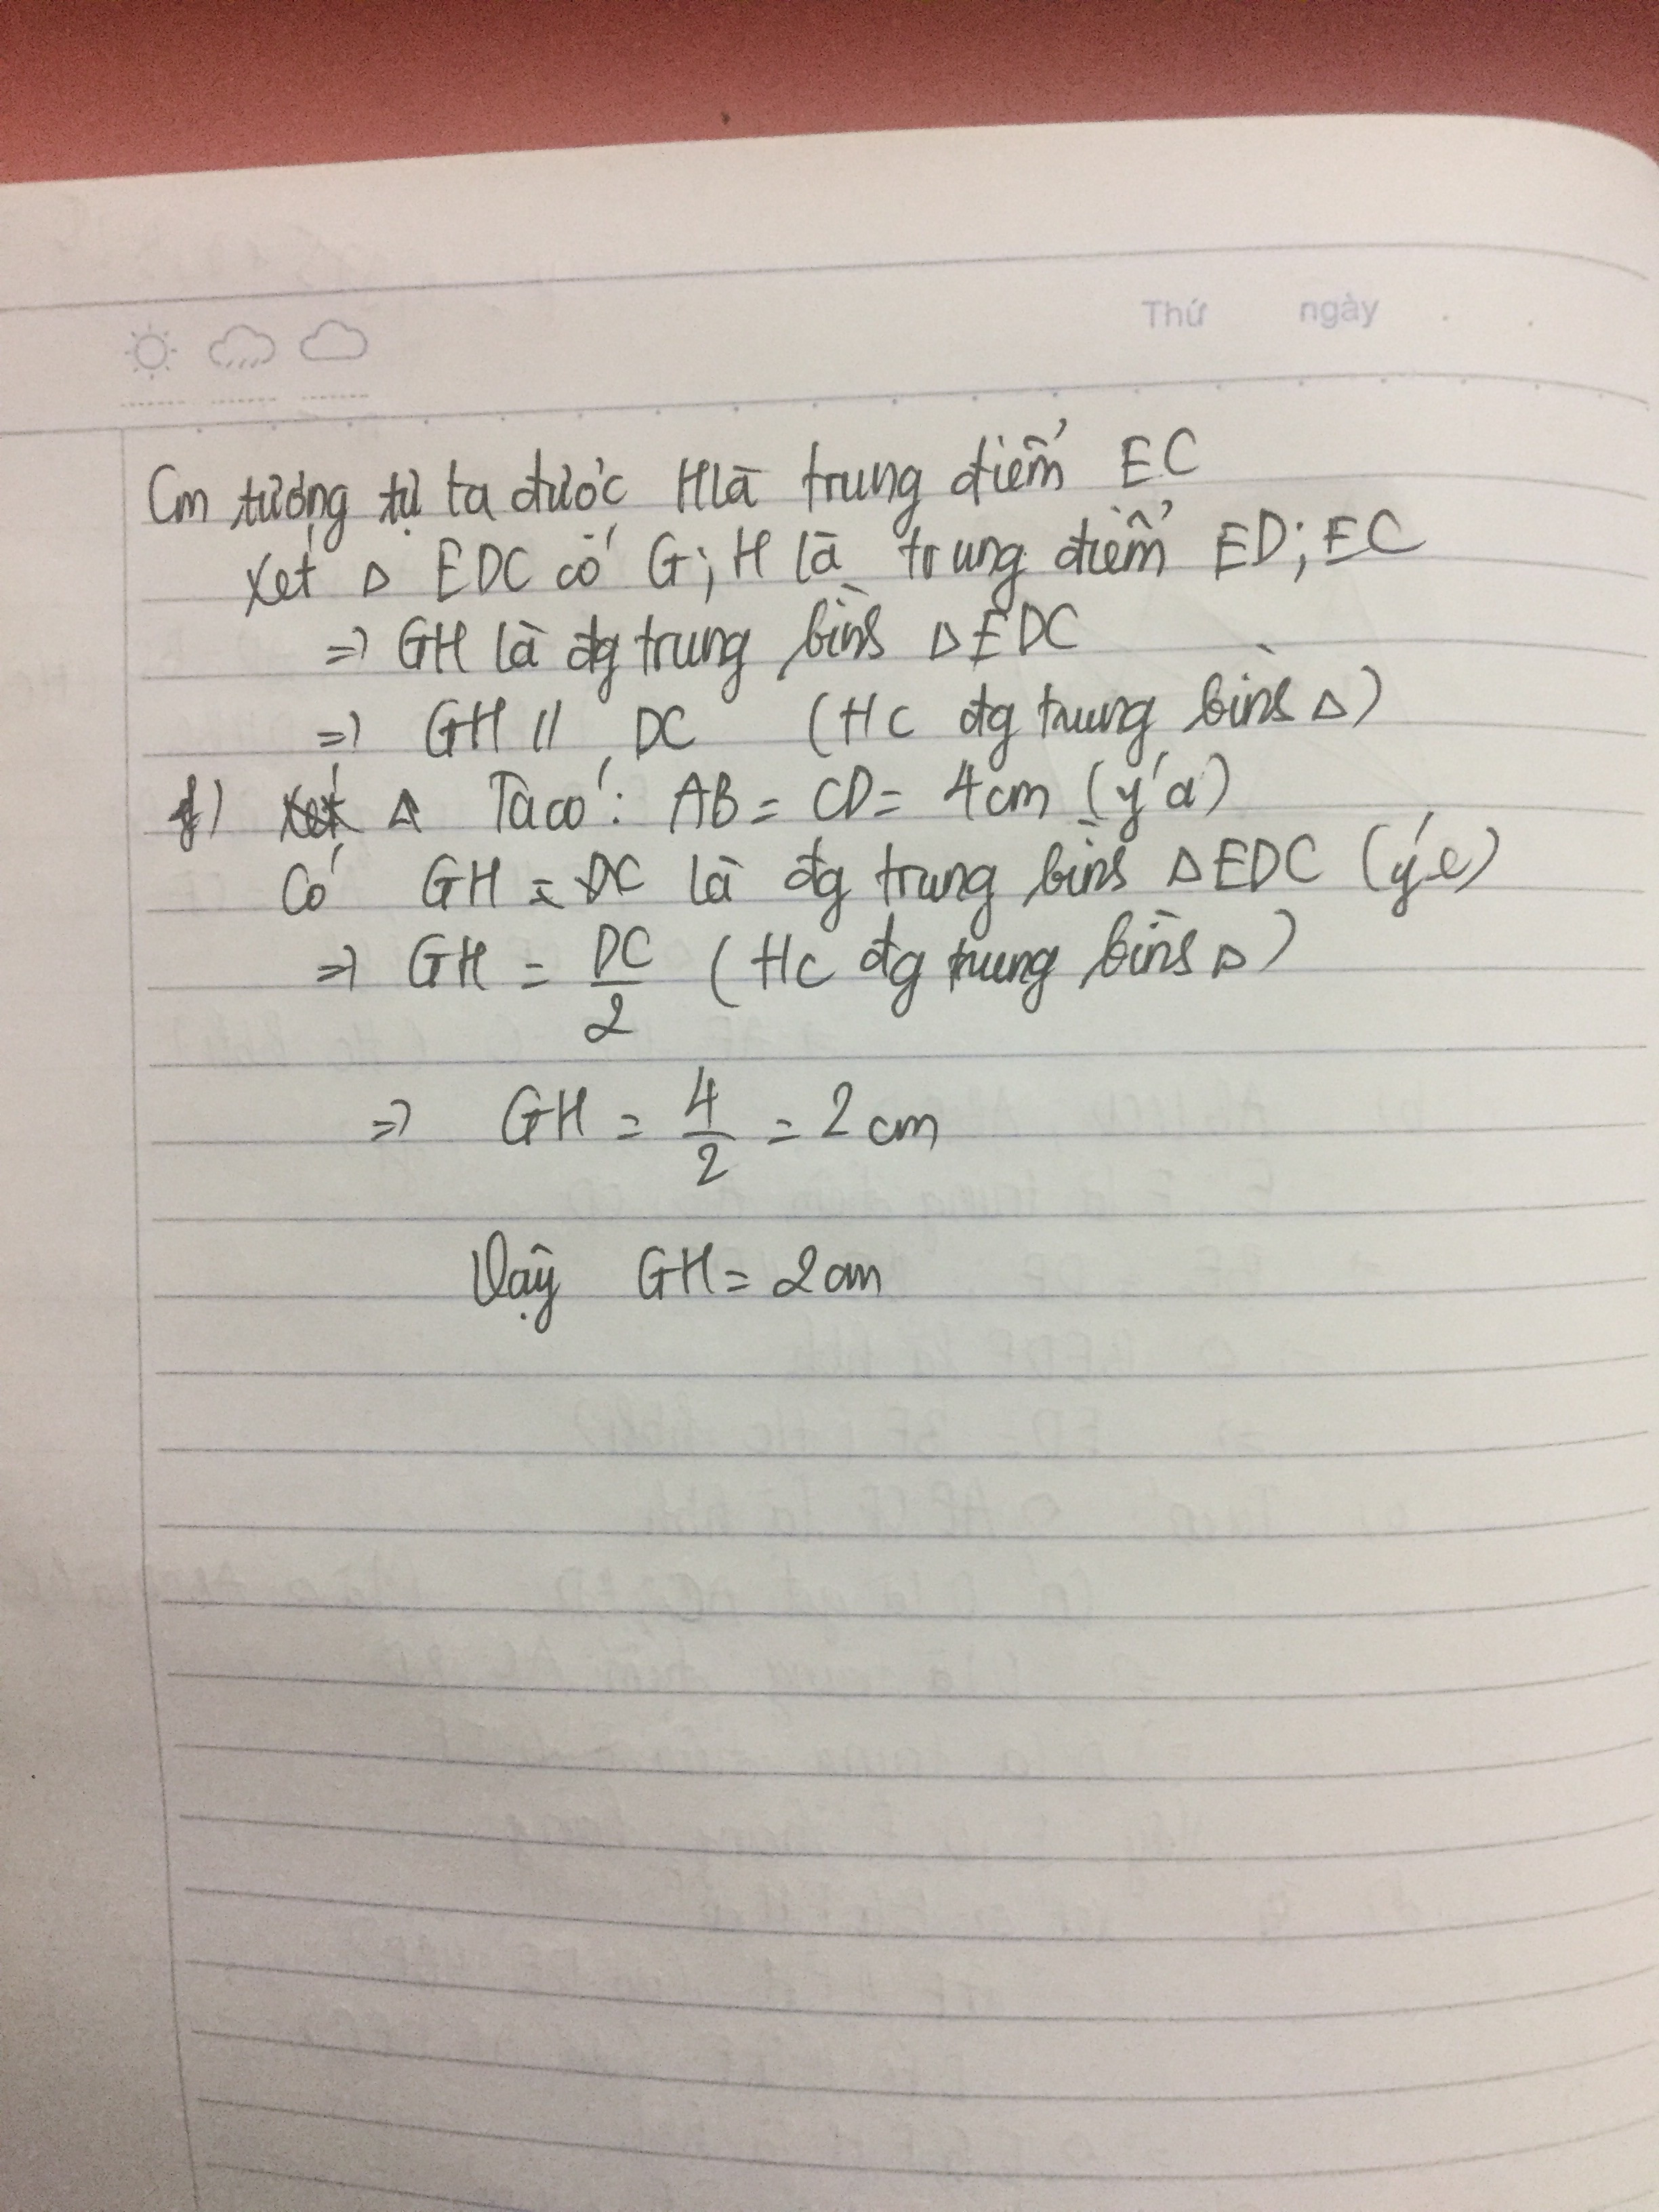 Thứ ngày
Cm tương tự ta được H là trung điểm EC
Xét Δ EDC có G; H là trung điểm ED; EC
=> GH là đg trung bình Δ EDC
=> GH // DC (Hc đg trung bình Δ)
f) Xét Δ Ta có: AB = CD = 4cm (ý a)
Có GH = DC là đg trung bình Δ EDC (ý e)
=> GH = DC/2 (Hc đg trung bình Δ)
=> GH = 4/2 = 2 cm
Vậy GH = 2cm